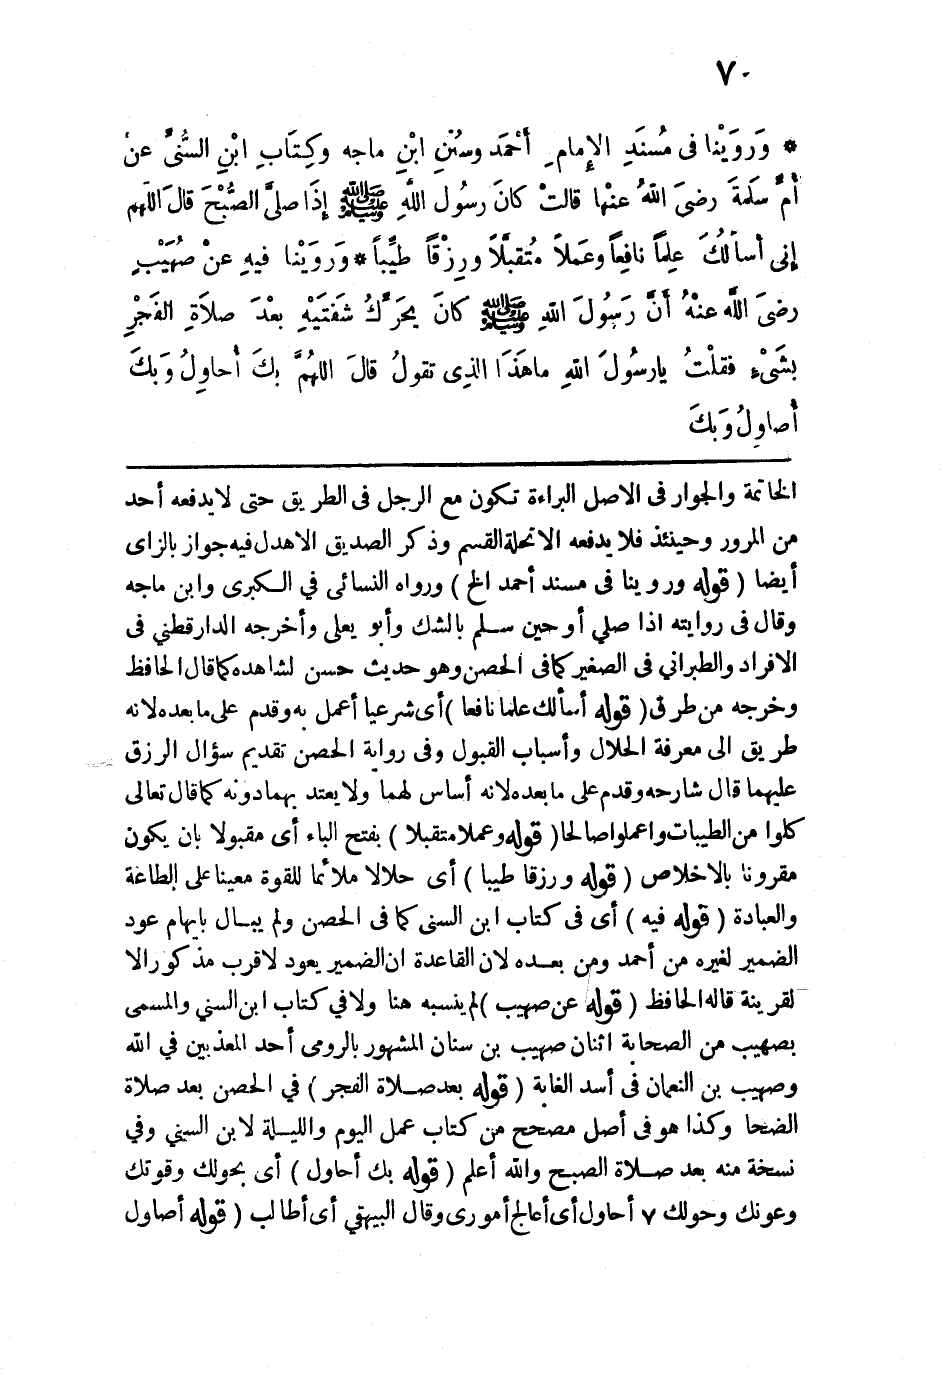 ٧٠
* وَرَوَيْنا فى مُسْنَدِ الإِمامِ أَحْمَدَ وسُنَنِ ابْنِ ماجه وكِتَابِ ابْنِ السُّنىِّ عنْ
أُمِّ سَلَمَةَ رضىَ اللّٰهُ عنْها قالتْ كانَ رسُول اللّٰهِ ﷺ إذَا صلىَّ الصُّبْحَ قالَ اللّٰهم
إنى أسأَلُكَ عِلماً نافِعاً وعَملاً مُتقبَّلاً ورِزْقاً طيِّباً * ورَوَيْنا فيهِ عنْ صُهَيْبٍ
رضىَ اللّٰه عنْهُ أنَّ رَسُولَ اللّٰهِ ﷺ كانَ يحَرِّكُ شفَتيْهِ بعْدَ صلاَةِ الفَجْرِ
بشَىْءٍ فقلْتُ يارسُولَ اللّٰهِ ماهَذَا الذِى تقولُ قالَ اللهُمَّ بكَ أحاوِلُ وَبكَ
أصاوِلُ وَبكَ
الخاتمة والجوار فى الاصل البراءة تكون مع الرجل فى الطريق حتى لايدفعه أحد
من المرور وحينئذ فلا يدفعه الاتحلة القسم وذكر الصديق الاهدل فيه جواز بالزاى
أيضا ( قوله وروينا فى مسند أحمد الخ ) ورواه النسائى في الكبرى وابن ماجه
وقال فى روايته اذا صلي أو حين سلم بالشك وأبو يعلى وأخرجه الدارقطني فى
الافراد والطبراني فى الصغير كمافى الحصن وهو حديث حسن لشاهده كماقال الحافظ
وخرجه من طرق ( قوله أسألك علما نافعا ) أى شرعيا أعمل به وقدم على مابعده لانه
طريق الى معرفة الحلال وأسباب القبول وفى رواية الحصن تقديم سؤال الرزق
عليهما قال شارحه وقدم على مابعده لانه أساس لهما ولا يعتد بهمادونه كماقال تعالى
كلوا من الطيبات واعملوا صالحا ( قوله وعملا متقبلا ) بفتح الباء أى مقبولا بان يكون
مقرونا بالاخلاص ( قوله ورزقا طيبا ) أى حلالا ملائما للقوة معينا على الطاعة
والعبادة ( قوله فيه ) أى فى كتاب ابن السنى كما فى الحصن ولم يبال بايهام عود
الضمير لغيره من أحمد ومن بعده لان القاعدة ان الضمير يعود لاقرب مذكور الا
لقرينة قاله الحافظ ( قوله عن صهيب ) لم ينسبه هنا ولافي كتاب ابن السني والمسمى
بصهيب من الصحابة اثنان صهيب بن سنان المشهور بالرومى أحد المعذبين في الله
وصهيب بن النعمان فى أسد الغابة ( قوله بعد صلاة الفجر ) في الحصن بعد صلاة
الضحا وكذا هو فى أصل مصحح من كتاب عمل اليوم والليلة لابن السني وفي
نسخة منه بعد صلاة الصبح والله أعلم ( قوله بك أحاول ) أى بحولك وقوتك
وعونك وحولك ٧ أحاول أى أعالج أمورى وقال البيهقي أى أطالب ( قوله أصاول